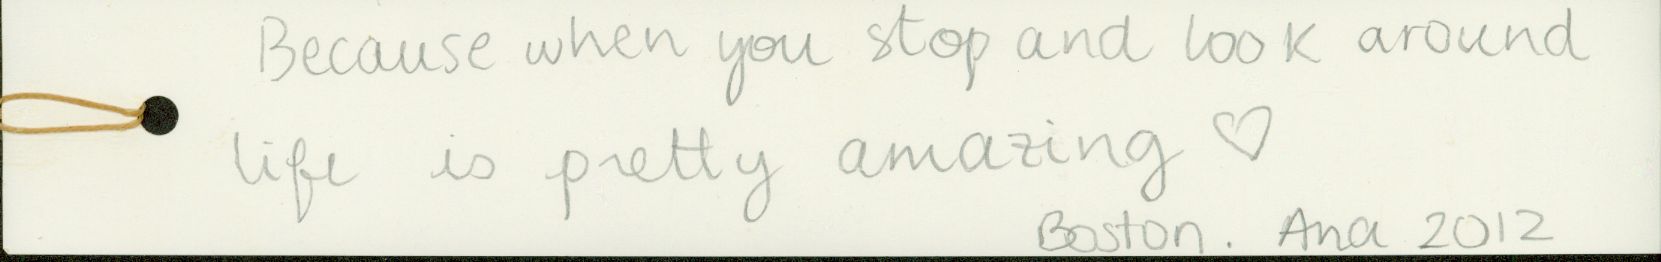 Because when you stop and look around
life is pretty amazing ♡
Boston. Ana 2012